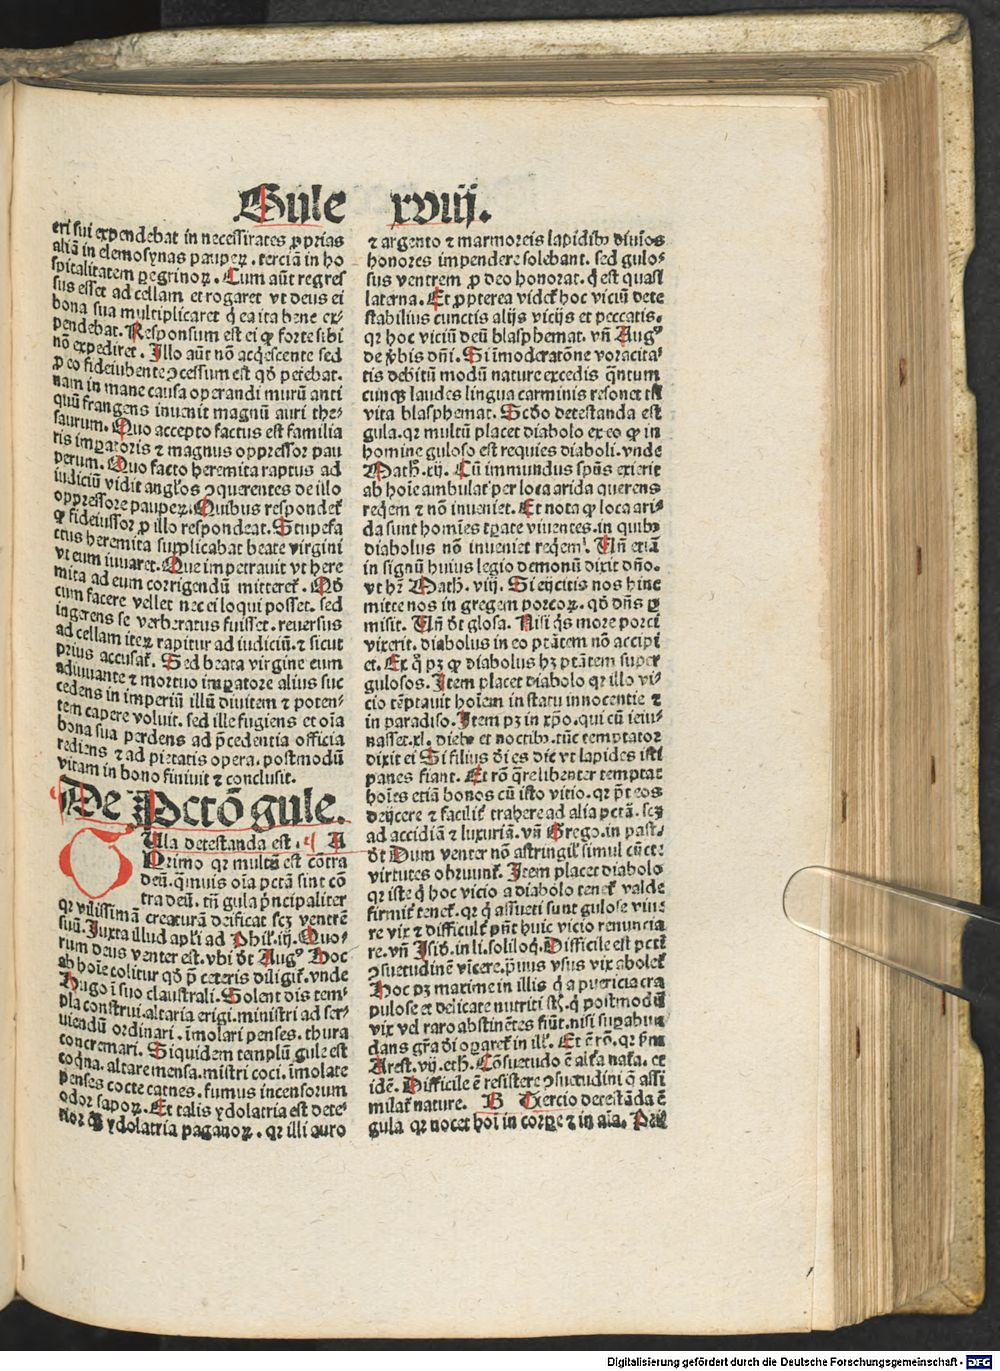 Gule xviij.
eri sui expendebat in necessitates ꝓprias
aliā in elemosynas pauperꝝ. terciā in ho
spitalitatem peregrinoꝝ. Cum aūt regres
sus esset ad cellam et rogaret vt deus ei
bona sua multiplicaret q̄ ea ita bene ex⸗
pendebat. Responsum est ei ꝙ forte sibi
nō expediret. Illo aūt nō acq̄escente sed
ꝓ eo fideiubente ꝯcessum est qd̄ petebat.
nam in mane causa operandi murū anti
quū frangens inuenit magnū auri the⸗
saurum. Quo accepto factus est familia
ris imꝑatoris ⁊ magnus oppressor pau
perum. Quo facto heremita raptus ad
iudiciū vidit angl'os ꝯquerentes de illo
oppressore pauperꝝ. Quibus respondet̄
ꝙ fideiussor ꝓ illo respondeat. Stupefa
ctus heremita supplicabat beate virgini
vt eum iuuaret. Que impetrauit vt here
mita ad eum corrigendū mitteret̄. Qd̄
cum facere vellet nec ei loqui posset. sed
ingerens se verberatus fuisset. reuersus
ad cellam iteꝝ rapitur ad iudiciū. ⁊ sicut
prius accusat̄. Sed beata virgine eum
adiuuante ⁊ mortuo imꝑatore alius suc
cedens in imperiū illū diuitem ⁊ poten⸗
tem capere voluit. sed ille fugiens et oīa
bona sua perdens ad p̄cedentia officia
rediens ⁊ ad pietatis opera. postmodū
vitam in bono finiuit ⁊ conclusit.
De Pctō gule.
Ulla detestanda est. ¶ A
Primo qr multū est cōtra
deū. q̄muis oīa pctā sint cō
tra deū. tn̄ gula p̄ncipaliter
qr vilissimā creaturā deificat scꝫ ventrē
suū. Iuxta illud apl'i ad Phil'. iij. Quo⸗
rum deus venter est. vbi dt̄ Augꝰ Hoc
ab hoīe colitur qd̄ p̄ ceteris diligit̄. vnde
Hugo ī suo claustrali. Solent dis tem⸗
pla construi. altaria erigi. ministri ad ser⸗
uiendū ordinari. īmolari penses. thura
concremari. Siquidem templū gule est
coqna. altare mensa. mistri coci. īmolate
penses cocte carnes. fumus incensorum
odor sapoꝝ. Et talis ydolatria est dete⸗
rior ꝙ̄ ydolatria paganoꝝ. qr illi auro
⁊ argento ⁊ marmoreis lapidibꝫ diuīos
honores impendere solebant. sed gulo⸗
sus ventrem ꝓ deo honorat. q̄ est quasi
laterna. Et ꝓpterea videt̄ hoc viciū dete
stabilius cunctis alijs vicijs et peccatis.
qr hoc viciū deū blasphemat. vn̄ Augꝰ
de v̄bis dn̄i. Si īmoderatōne voracita⸗
tis debitū modū nature excedis q̄ntum
cunqꝫ laudes lingua carminis resonet tn̄
vita blasphemat. Scd̄o detestanda est
gula. qr multū placet diabolo ex eo ꝙ in
homine guloso est requies diaboli. vnde
Math. xij. Cū immundus spūs exierit
ab hoīe ambulat per loca arida querens
reqē̄m ⁊ nō inueniet. Et nota ꝙ loca ari⸗
da sunt homīes tꝑate viuentes. in quibꝫ
diabolus nō inueniet reqē̄m. Un̄ etiā
in signū huius legio demonū dixit dn̄o.
vt hr̄ Math. viij. Si eijcitis nos hinc
mitte nos in gregem porcoꝝ. qd̄ dn̄s ꝑ
misit. Un̄ dt̄ glosa. Nisi q̄s more porci
vixerit. diabolus in eo ptātem nō accipi
et. Ex q̄ pꝫ ꝙ diabolus hꝫ ptātem super
gulosos. Item placet diabolo qr illo vi⸗
cio tēptauit hoīem in statu innocentie ⁊
in paradiso. Item pꝫ in xp̄o. qui cū ieiu⸗
nasset. xl. diebꝫ et noctibꝫ. tūc temptator
dixit ei Si filius dī es dic vt lapides isti
panes fiant. Et rō q̄re libenter temptat
hoīes etiā bonos cū isto vitio. qr p̄t eos
deijcere ⁊ facilit̄ trahere ad alia pctā. scꝫ
ad accidiā ⁊ luxuriā. vn̄ Grego. in past.
dt̄ Dum venter nō astringit̄ simul cūcte
virtutes obruunt̄. Item placet diabolo
qr iste q̄ hoc vicio a diabolo tenet̄ valde
firmit̄ tenet̄. qr q̄ assueti sunt gulose viue
re vix ⁊ difficult̄ pn̄t huic vicio renuncia
re. vn̄ Isid. in li. soliloq. Difficile est pctī
ꝯsuetudinē vīcere. p̄uus vsus vix abolet̄
Hoc pꝫ maxime in illis q̄ a puericia cra
pulose et delicate nutriti st̄. q̄ postmodū
vix vel raro abstinētes fiūt. nisi suꝑabun
dans gr̄a dī oꝑaret̄ in ill'. Et ē rō. qr p̄m
Arest. vij. eth. Cōsuetudo ē alt̄a nat̄a. et
idē. Difficile ē resistere ꝯsuetudini q̄ assi
milat̄ nature. B Tercio detestāda ē
gula qr nocet hoī in corꝑe ⁊ in aīa. Pri
Digitalisierung gefördert durch die Deutsche Forschungsgemeinschaft - DFG